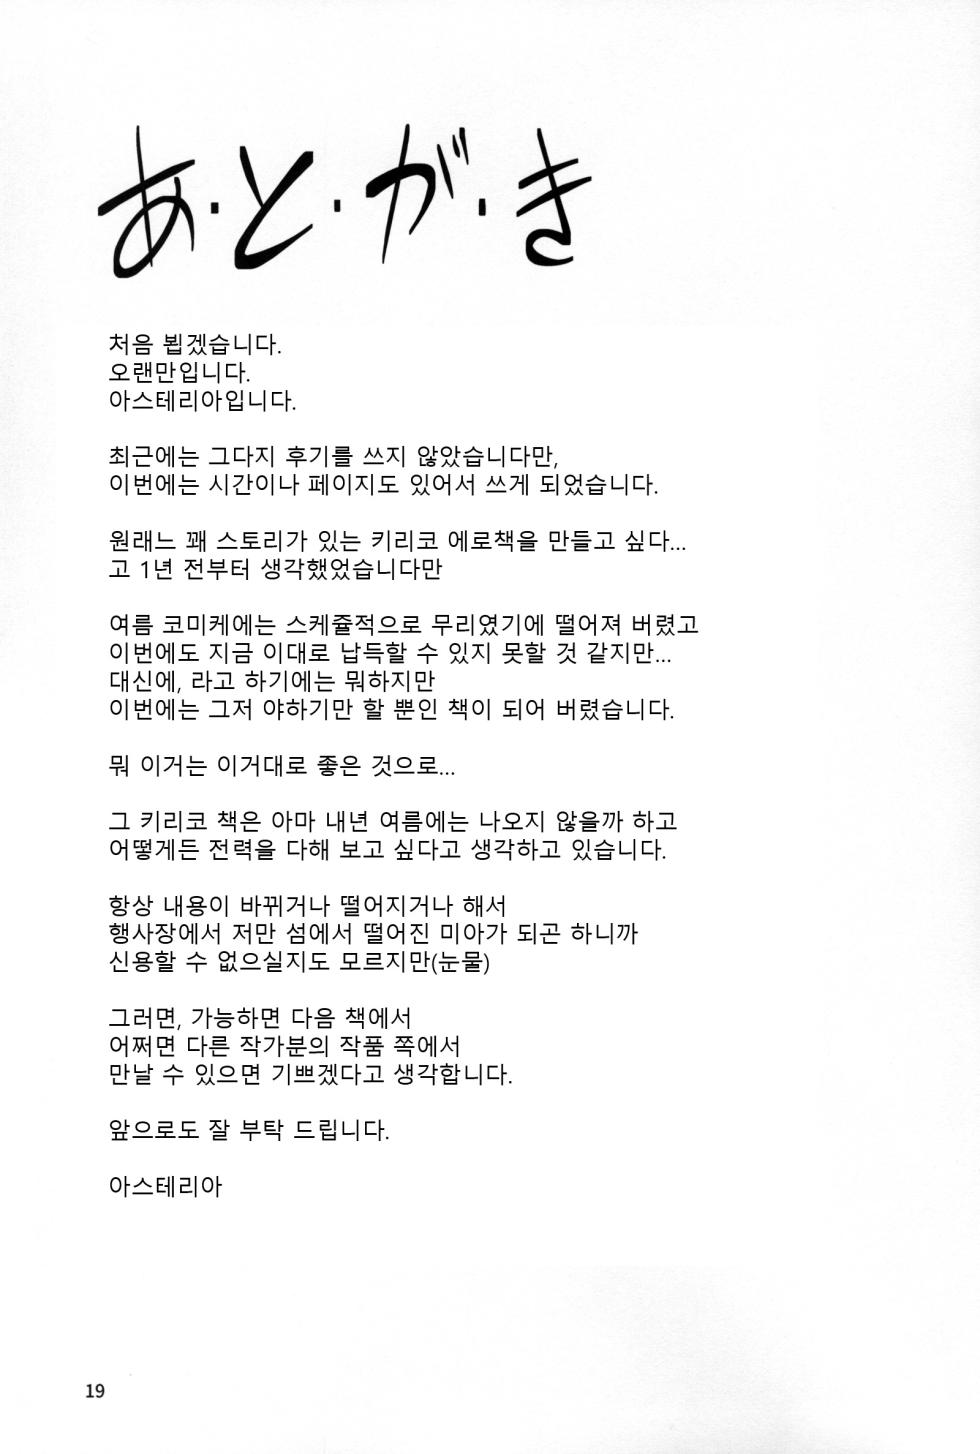 あ・と・が・き
처음 뵙겠습니다.
오랜만입니다.
아스테리아입니다.
최근에는 그다지 후기를 쓰지 않았습니다만,
이번에는 시간이나 페이지도 있어서 쓰게 되었습니다.
원래느 꽤 스토리가 있는 키리코 에로책을 만들고 싶다...
고 1년 전부터 생각했었습니다만
여름 코미케에는 스케쥴적으로 무리였기에 떨어져 버렸고
이번에도 지금 이대로 납득할 수 있지 못할 것 같지만...
대신에, 라고 하기에는 뭐하지만
이번에는 그저 야하기만 할 뿐인 책이 되어 버렸습니다.
뭐 이거는 이거대로 좋은 것으로...
그 키리코 책은 아마 내년 여름에는 나오지 않을까 하고
어떻게든 전력을 다해 보고 싶다고 생각하고 있습니다.
항상 내용이 바뀌거나 떨어지거나 해서
행사장에서 저만 섬에서 떨어진 미아가 되곤 하니까
신용할 수 없으실지도 모르지만(눈물)
그러면, 가능하면 다음 책에서
어쩌면 다른 작가분의 작품 쪽에서
만날 수 있으면 기쁘겠다고 생각합니다.
앞으로도 잘 부탁 드립니다.
아스테리아
19